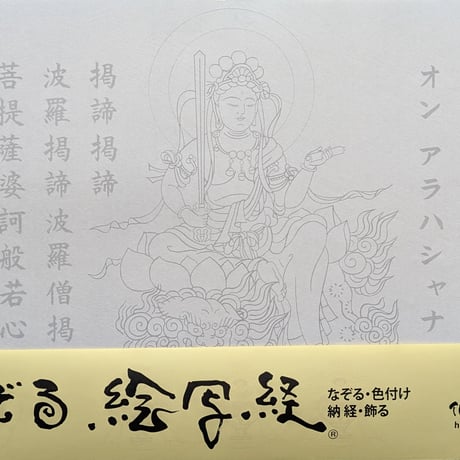 オン アラハシャナ
掲諦掲諦
波羅掲諦波羅僧掲
菩提薩婆訶般若心
ぞる 絵写経
®
なぞる・色付け
納経・飾る